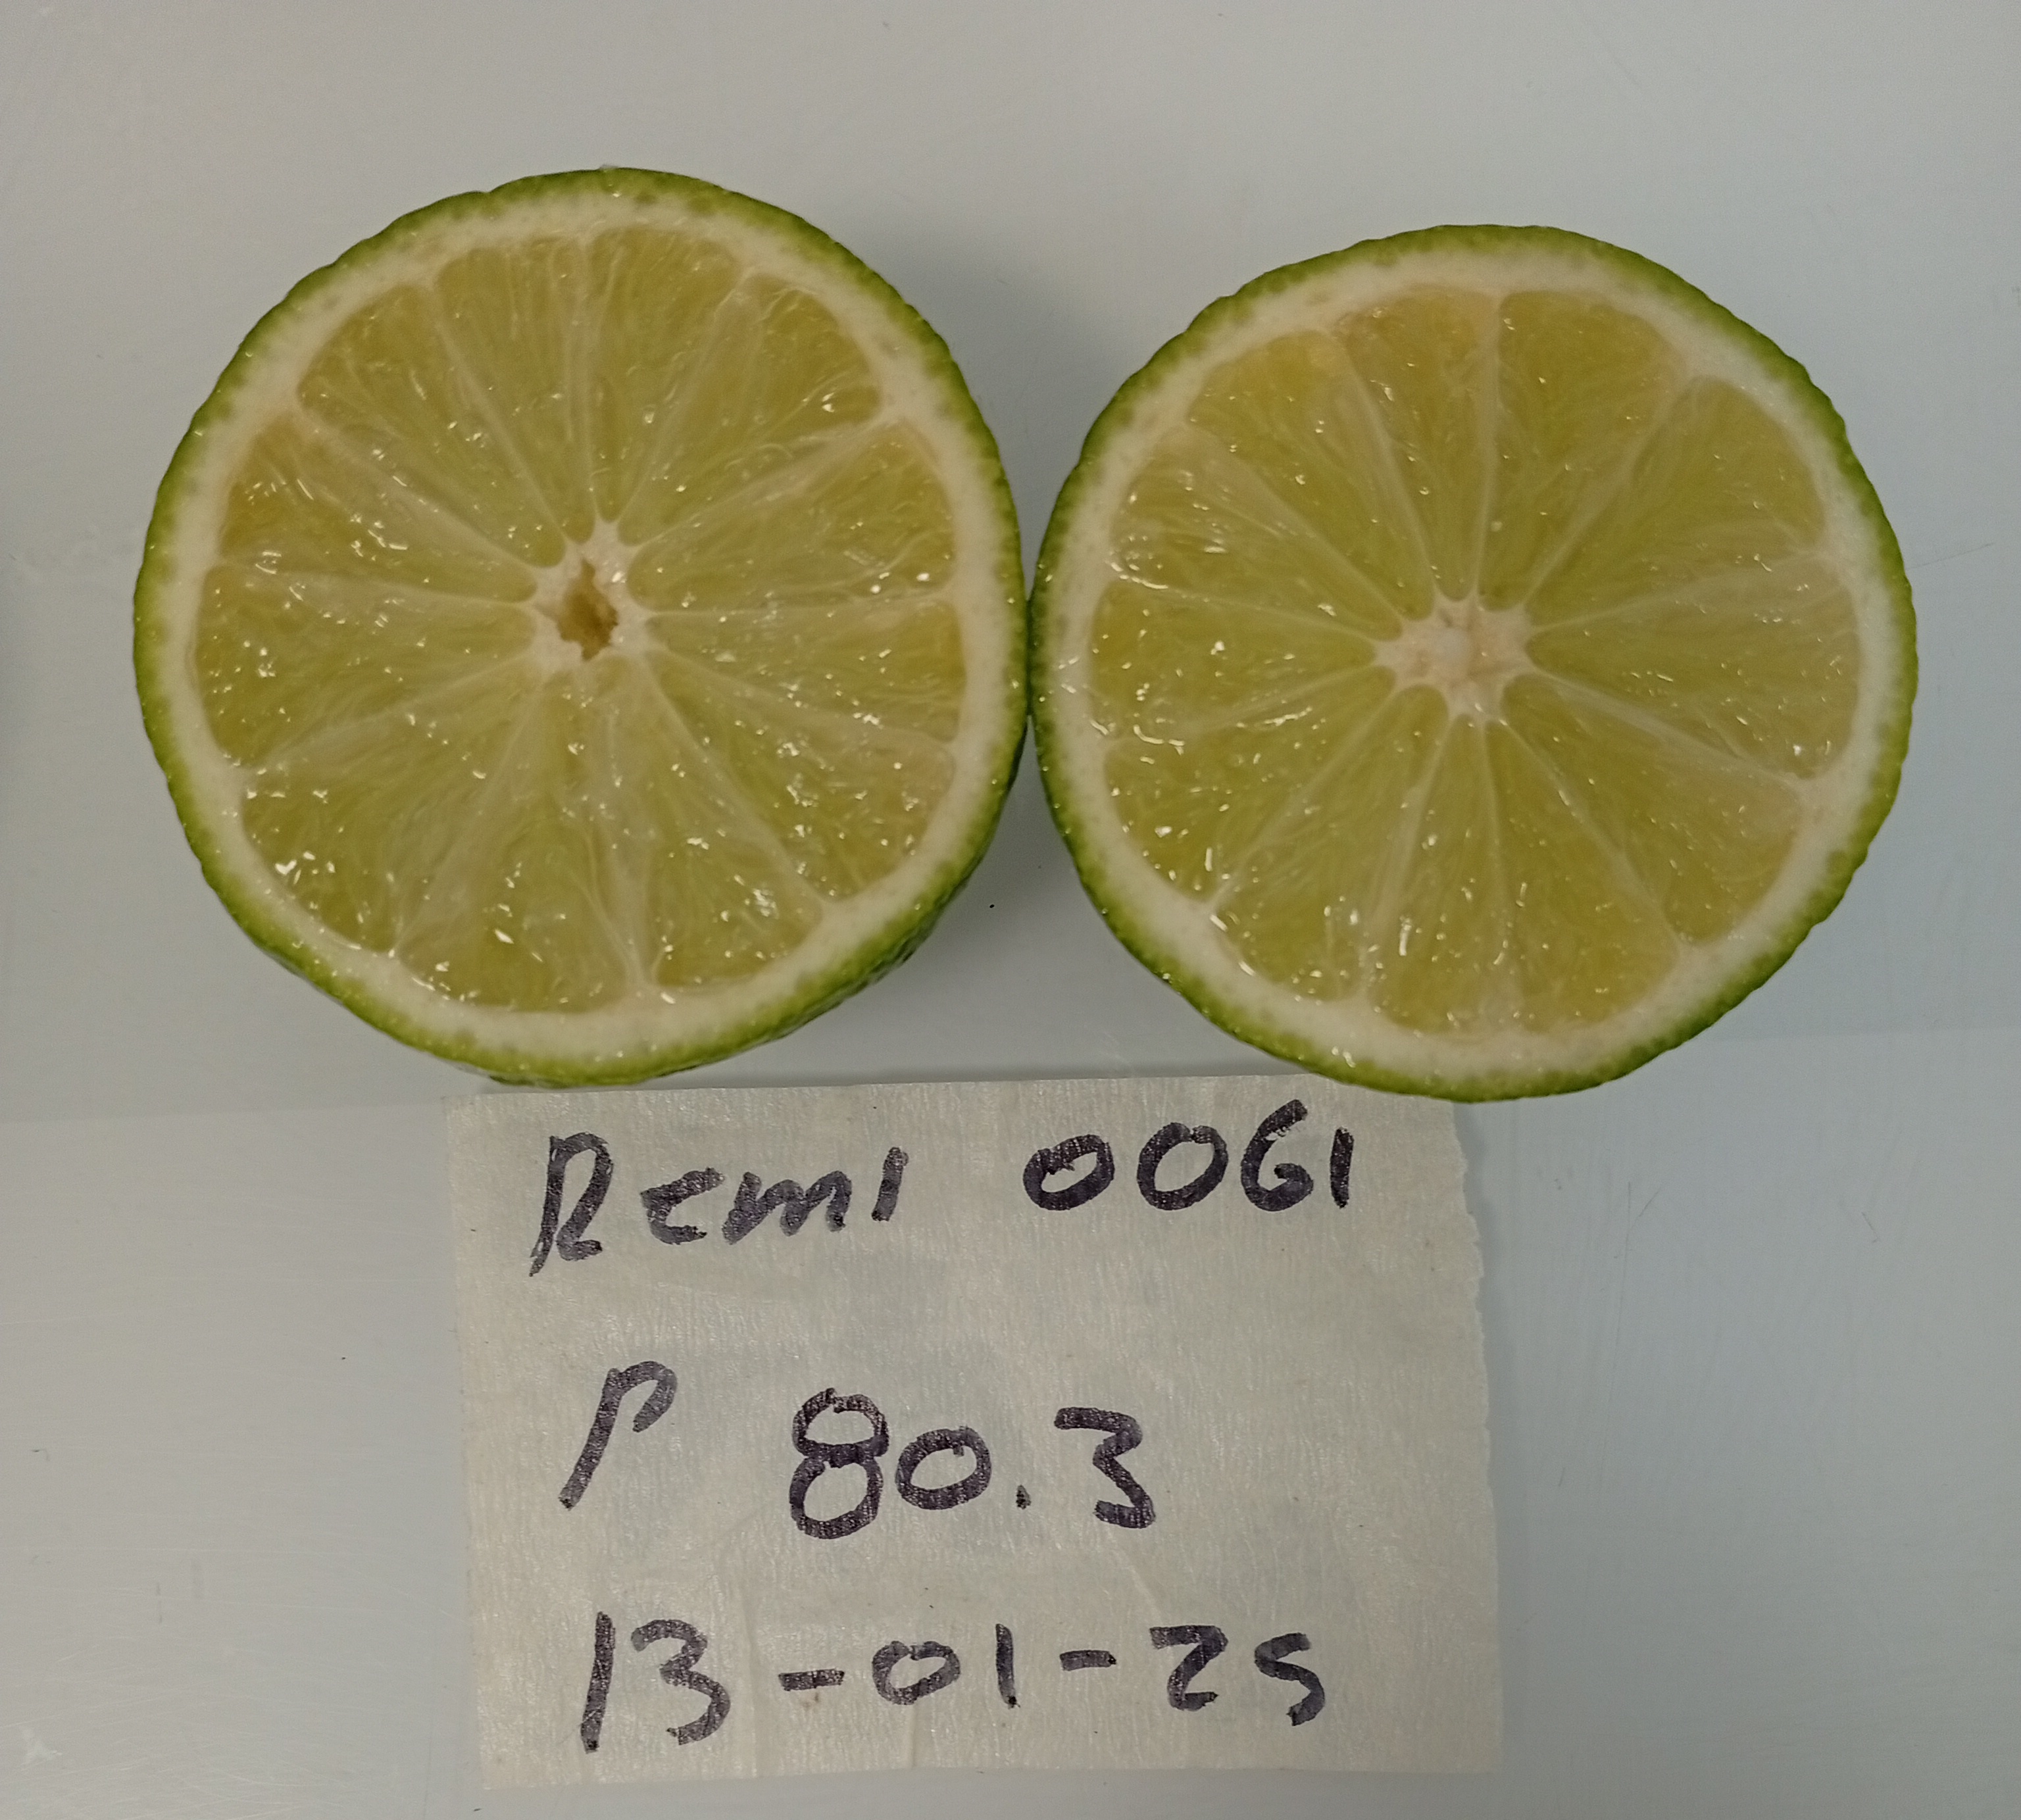 Remi 0061
P 80.3
13-01-25